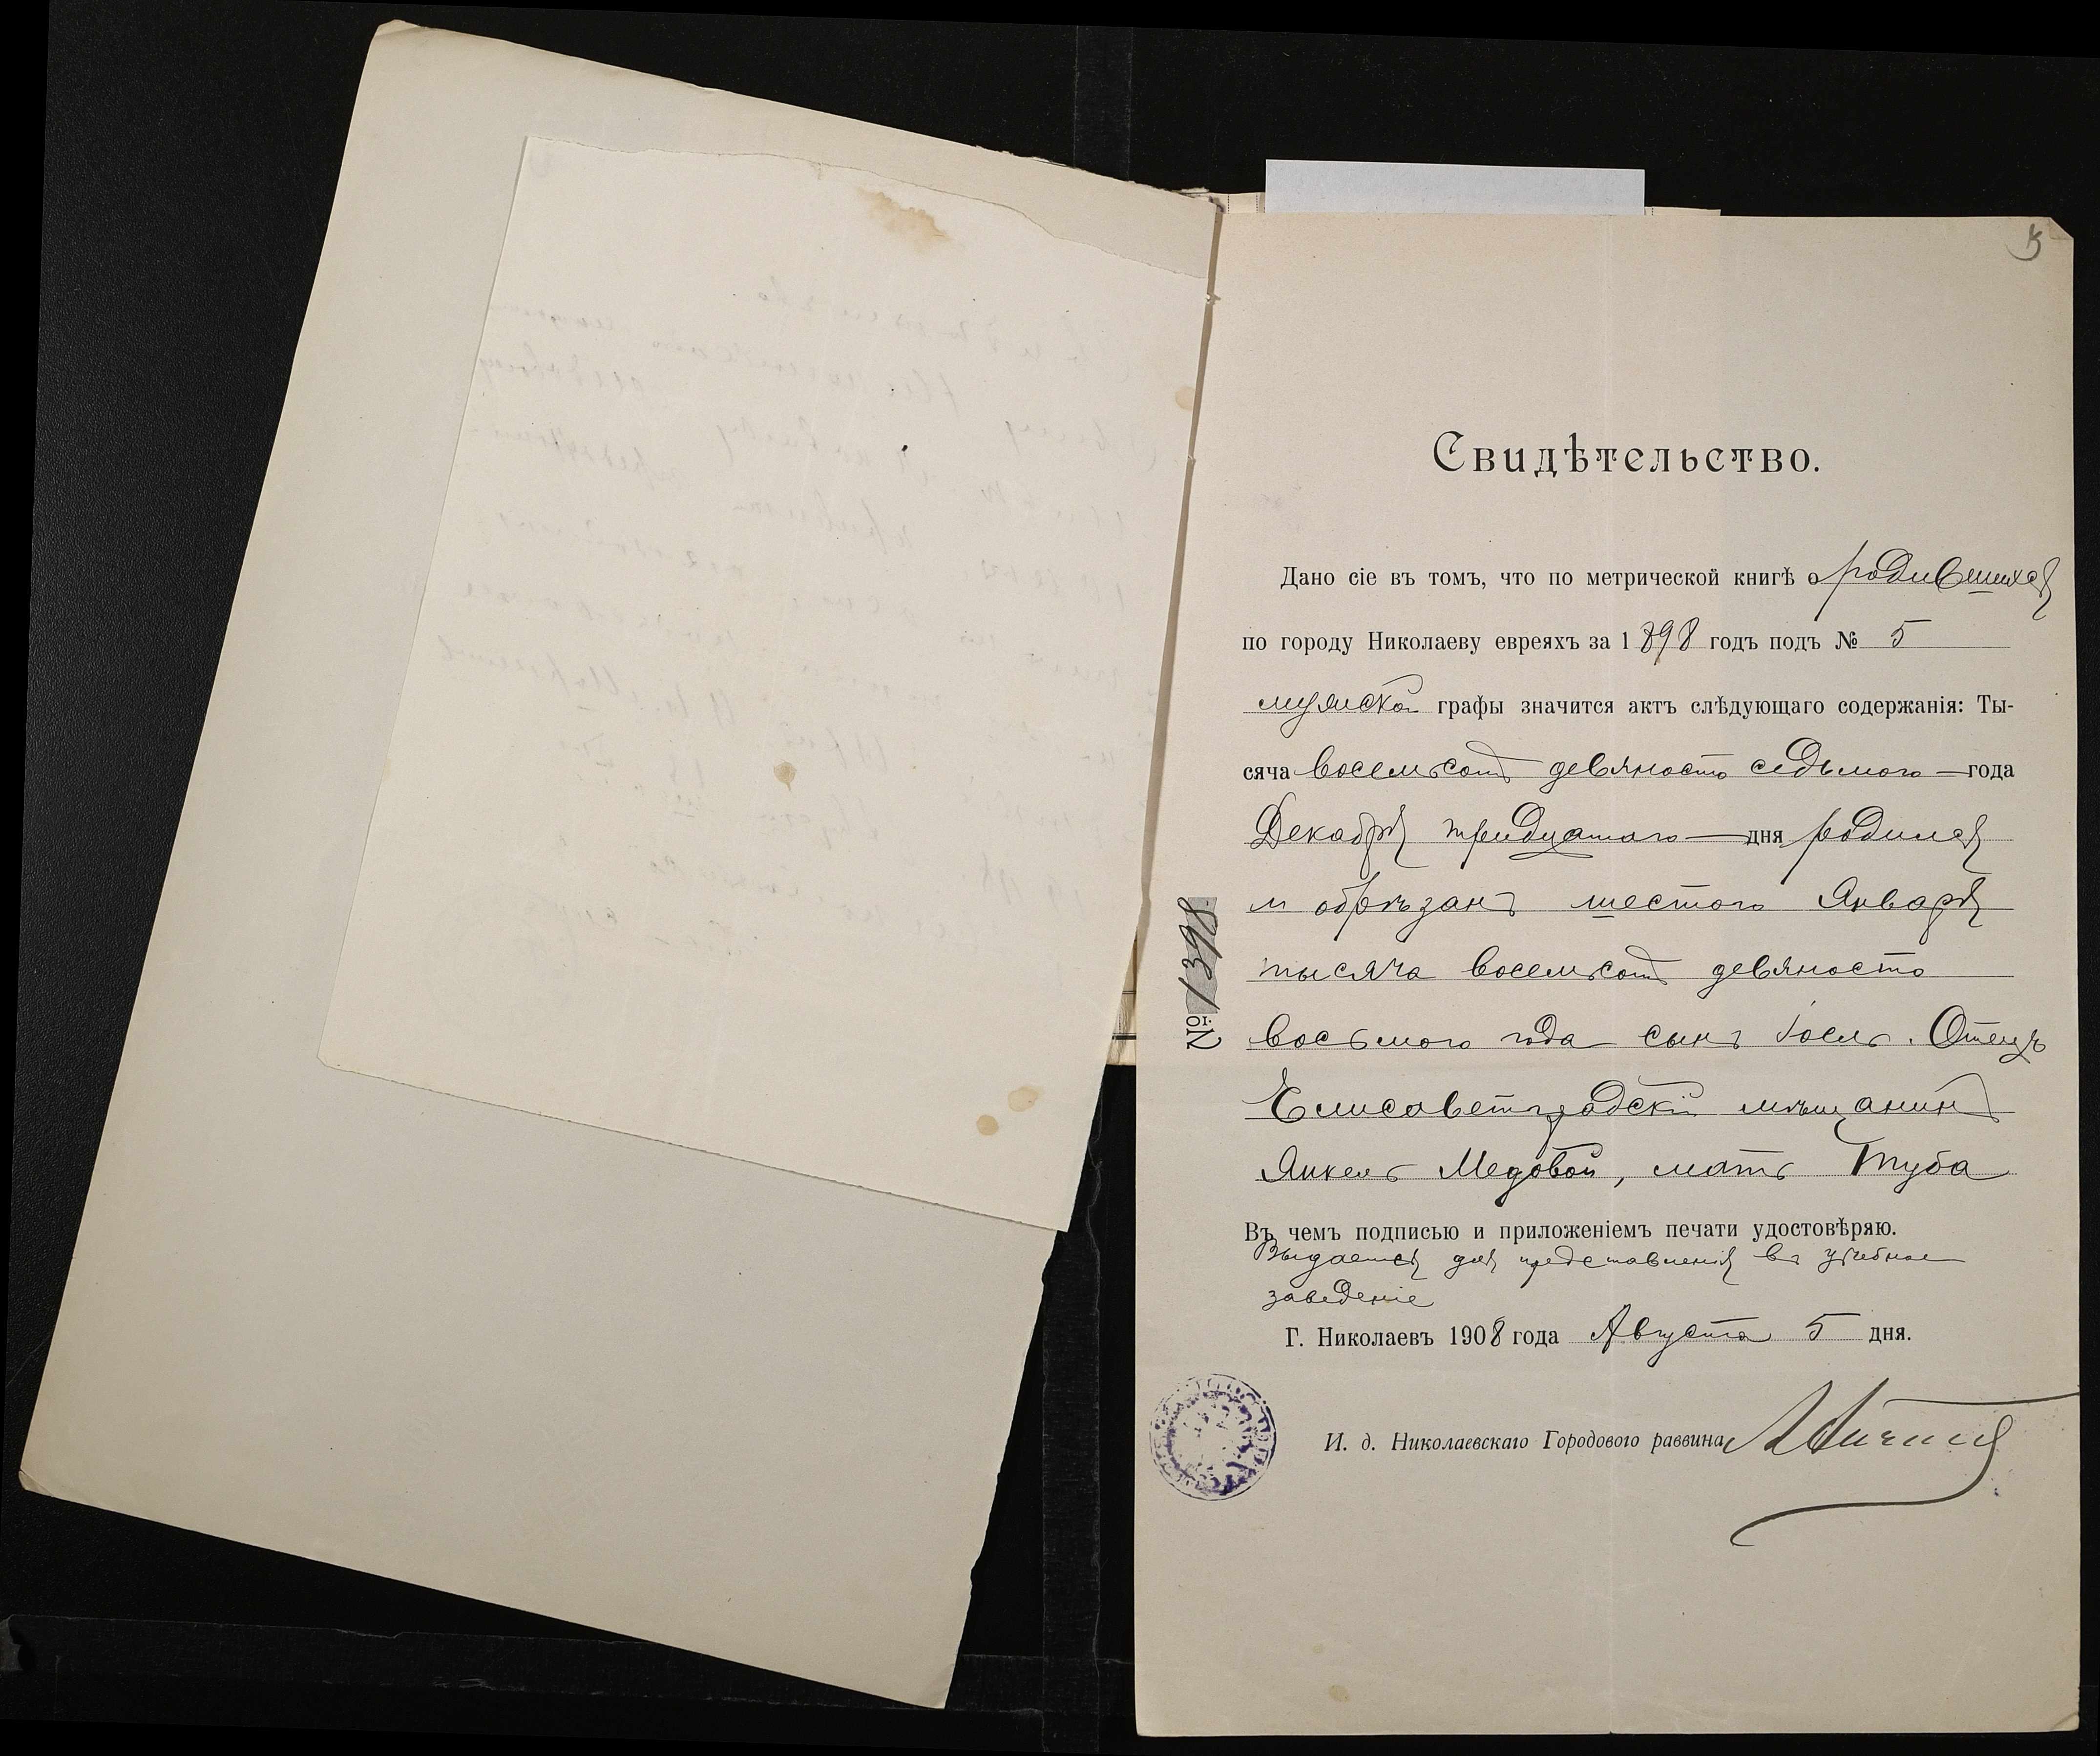 5
Свидѣтельство.
Дано сіе въ томъ, что по метрической книгѣ о родившихся
по городу Николаеву евреяхъ за 1898 годъ подъ № 5
мужской графы значится актъ слѣдующаго содержанія: Ты-
сяча восемьсотъ девяносто седьмого года
Декабря тридцатаго дня родился
и обрѣзанъ шестого Января
тысяча восемьсотъ девяносто
восьмого года сынъ Іоель. Отецъ
Елисаветградскій мѣщанинъ
Янкель Медовой, мать Туба
Въ чемъ подписью и приложеніемъ печати удостовѣряю.
Выдается для представленія въ учебное
заведеніе
Г. Николаевъ 1908 года Августа 5 дня.
И. д. Николаевскаго Городового раввина
№ 1398